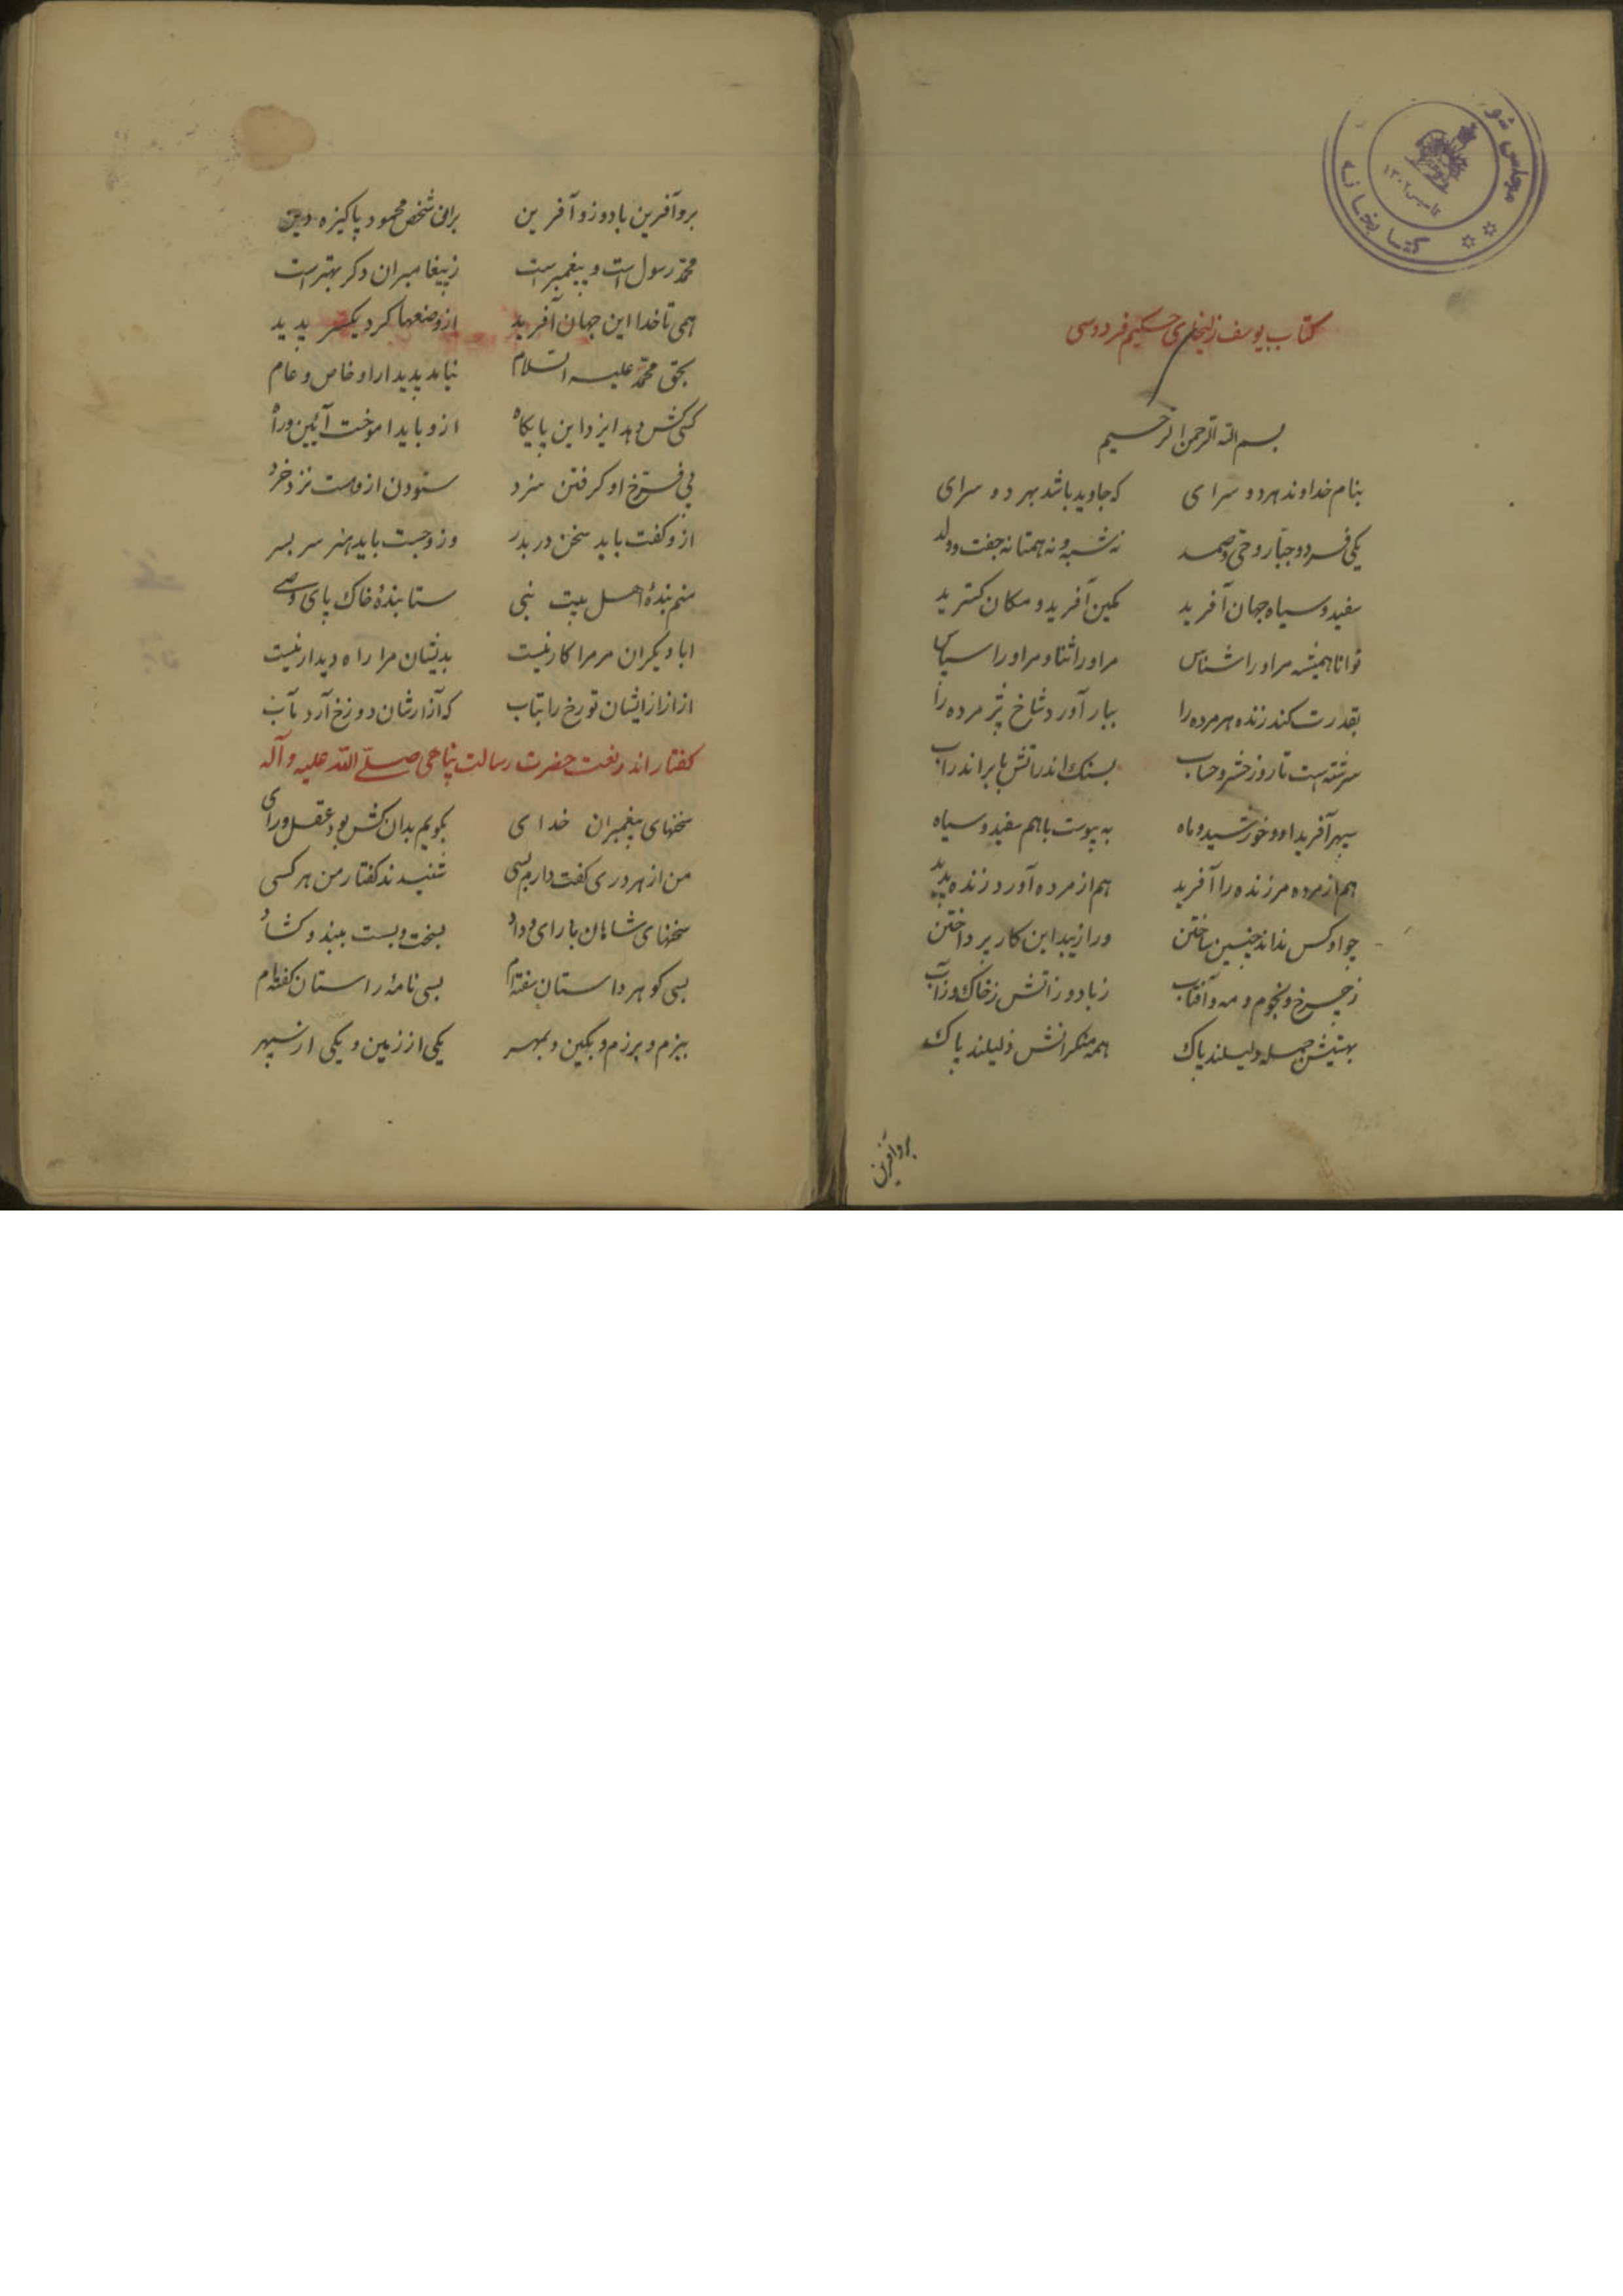 کتابخانه مجلس شو
تاسیس ۱۳۰۲
کتاب یوسف زلیخای حکیم فردوسی
بسم الله الرحمن الرحیم
بنام خداوند هر دو سرای که جاوید باشد بهر دو سرای
یکی فرد و جبار و حی و صمد نه شبه و نه همتا نه جفت و ولد
سفید و سیاه جهان آفرید مکین آفرید و مکان گسترید
توانا همیشه مر او را شناس مر او را ثنا و مر او را سپاس
بقدرت کند زنده هر مرده را ببار آورد شاخ پژمرده را
سرشته است تا روز حشر و حساب بسنک اندر آتش بابر اندر آب
سپهر آفرید او و خورشید و ماه به پیوست باهم سفید و سیاه
هم از مرده مر زنده را آفرید هم از مرده آورد زنده پدید
چو او کس نداند چنین ساختن ورا زیبد این کار پرداختن
ز چرخ و نجوم و مه و آفتاب ز باد و ز آتش ز خاک و ز آب
بهستیش جمله دلیلند پاک همه منکرانش ذلیلند پاک
بروآفرین
برو آفرین باد وزو آفرین بران شخص محمود پاکیزه دین
محمد رسول است و پیغمبر است ز پیغامبران دکر بهتر است
همی تا خدا این جهان آفرید ازو صنعها کرد یکسر پدید
بحق محمد علیه السلام نیامد پدیدار او خاص و عام
کسی کش دهد ایزد این پایکاه ازو باید اموخت آیین و راه
پی فرخ او کرفتن سزد ستودن از وست نزد خرد
ازو کفت باید سخن در بدر وزو جست باید هنر سر بسر
منم بندهٔ اهل بیت نبی ستایندهٔ خاک پای وصی
ابا دیکران مر مرا کار نیست بدیشان مرا راه دیدار نیست
از ازار ایشان تو رخ را بتاب که آزارشان دوزخ آرد مآب
کفتار اندر نعت حضرت رسالت پناهی صلی الله علیه و آله
سخنهای پیغمبران خدای بکویم بدان کش بود عقل و رای
من از هر دری کفته دارم بسی شنیدند کفتار من هر کسی
سخنهای شاهان با رای و داد بسخت و بست ببند و کشاد
بسی کوهر داستان سفته‌ام بسی نامهٔ راستان کفته‌ام
ببزم و برزم و بکین و بمهر یکی از زمین و یکی از سپهر